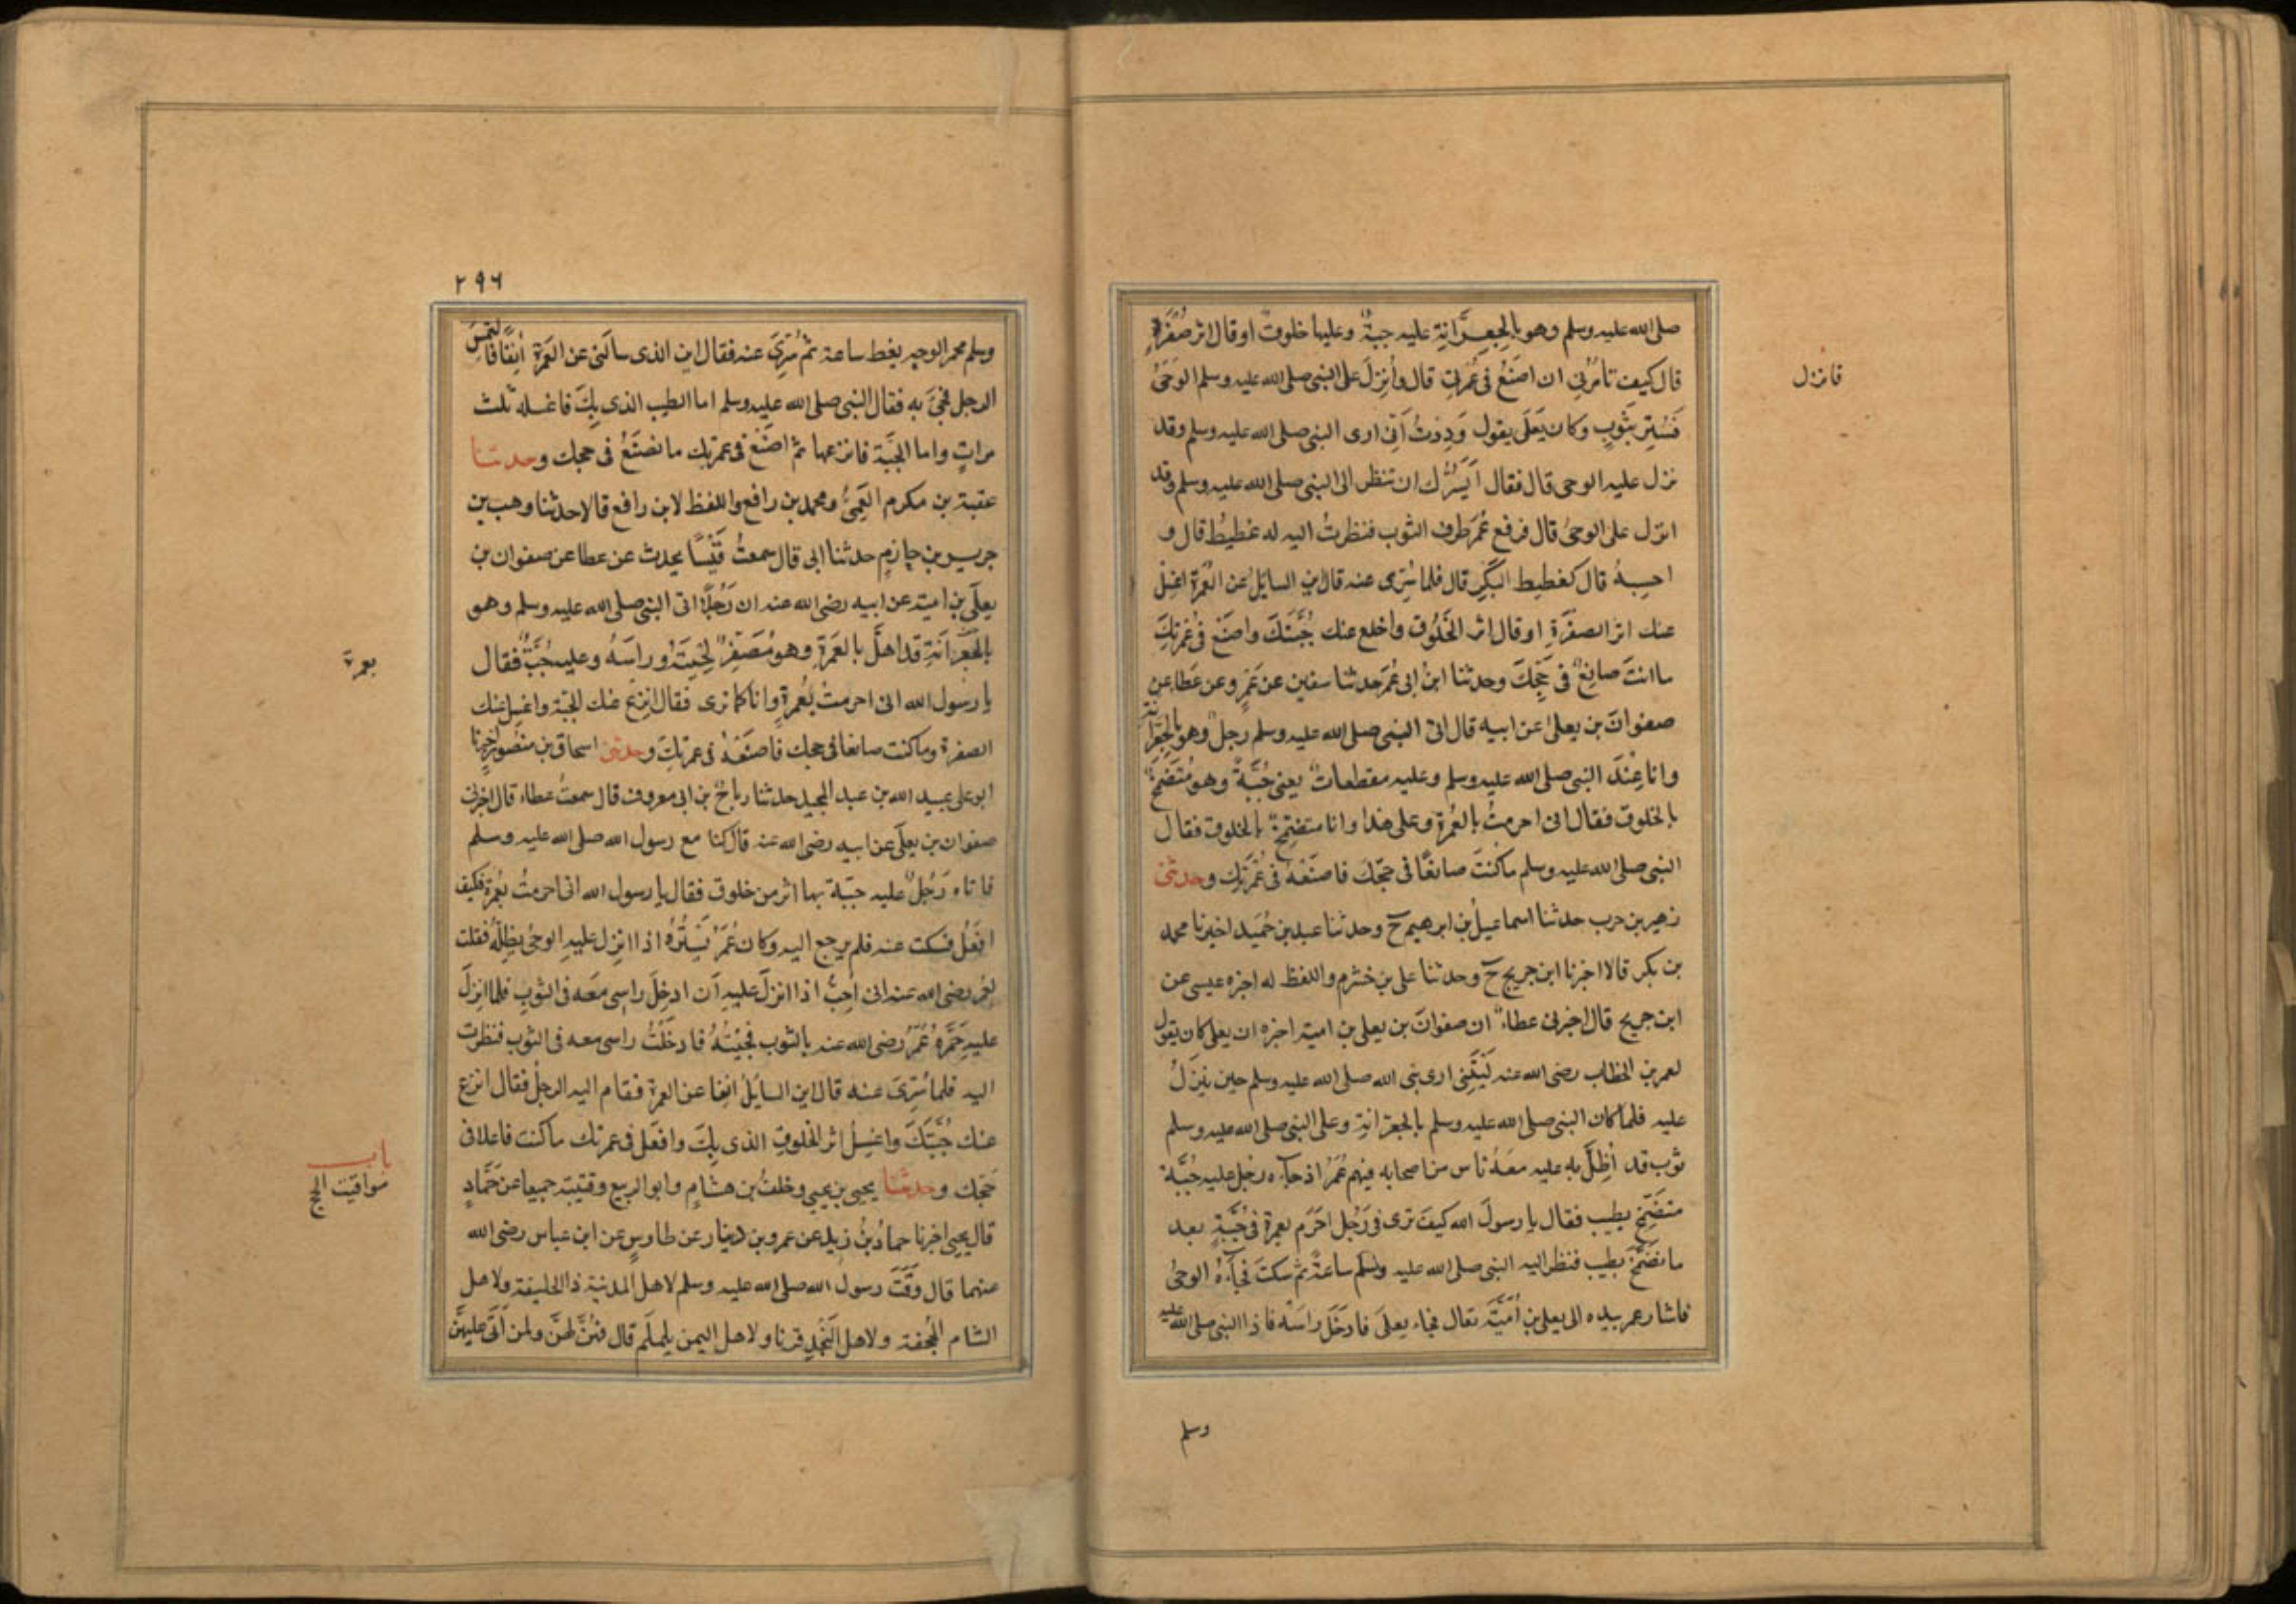 صلى الله عليه وسلم وهو بالجِعِرَّانةِ عليه جبةٌ وعليها خلوقٌ او قال اثر صُفْرَةٍ
قال كيف تامُرُني ان اصنَعُ في عُمْرتِي قال وأُنزِلَ على النبي صلى الله عليه وسلم الوَحْيُ
فانزل
فَسُتِرَ بثوبٍ وكان يَعْلَى يقول وَدِدْتُ اَنّي ارى النبي صلى الله عليه وسلم وقد
نزل عليه الوحى قال فقال اَيَسُرُّك ان تنظر الى النبي صلى الله عليه وسلم وقد
انزل على الوحىُ قال فرفع عُمَرُ طرف الثوب فنظرتُ اليه له غطيطٌ قال و
احسِبهُ قال كغطيط البَكْرِ قال فلما سُرّى عنه قال اين السايلُ عن العُمرة اغسِلْ
عنك اثر الصفرَةِ او قال اثر الخَلُوق واخلع عنك جُبَّتَكَ واصنَعْ في عُمْرتِكَ
ما انتَ صانِعٌ في حَجِّكَ وحدثنا ابنُ ابى عُمَرَ حدثنا سفين عن عَمْرٍو عن عَطاء عن
صفوانَ بن يعلى عن ابيه قال اتى النبي صلى الله عليه وسلم رجلٌ وهو بالجِعْرانة
وانا عِنْدَ النبي صلى الله عليه وسلم وعليه مقطعاتٌ يعني جُبَّةً وهو مُتَضَمِّخٌ
بالخلوق فقال انى احرمتُ بالعُمرة وعلى هذا وانا متضمّخٌ بالخلوق فقال
النبي صلى الله عليه وسلم ما كنتَ صانعًا في حَجِّكَ فاصنَعْهُ في عُمْرَتِكَ وحدثنى
زهير بن حرب حدثنا اسماعيلُ بن ابرهيم ح وحدثنا عبد بن حُمَيد اخبرنا محمد
بن بكر قالا اخبرنا ابن جريج ح وحدثنا على بن خشرم واللفظ له اخبره عيسى عن
ابن جريج قال اخبرنى عطاءٌ ان صفوانَ بن يعلى بن امية اخبره ان يعلى كان يقول
لعمر بن الخطاب رضى الله عنه لَيْتَنِي ارى نبى الله صلى الله عليه وسلم حين يُنزَلُ
عليه فلما كان النبي صلى الله عليه وسلم بالجعرانةِ وعلى النبي صلى الله عليه وسلم
ثوب قد اُظِلَّ به عليه معَهُ ناس من اصحابه فيهم عُمَرُ اذ جآءه رجل عليه جُبَّة
متضمّخ بطيب فقال يا رسولَ الله كيفَ ترى في رَجُل احرَم بعمرة في جُبَّةٍ بعد
ما تضمَّخَ بطيب فنظر اليه النبي صلى الله عليه وسلم ساعةً ثم سكتَ فجآءَهُ الوحىُ
فاشار عمر بيده الى يعلى بن اُمَيَّةَ تعال فجاء يعلى فادخَلَ راسَهُ فاذا النبي صلى الله عليه
وسلم
٢٩٦
وسلم محمر الوجه يغط ساعة ثم سُرِّيَ عنه فقال اين الذى سالَنى عن العُمرَة اٰنِفًا فالتُمِسَ
الرجل فجيَ به فقال النبي صلى الله عليه وسلم اما الطيب الذى بِكَ فاغسله ثلث
مراتٍ واما الجُبَّة فانزعها ثم اصنَعْ في عمرتك ما تصنَعُ في حجك وحدثنا
عقبة بن مكرم العَمِّيُّ ومحمد بن رافع واللفظ لابن رافع قالا حدثنا وهب بن
جرير بن حازمٍ حدثنا ابى قال سمعتُ قَيْسًا يحدث عن عطا عن صفوان بن
يعلَى بن امية عن ابيه رضى الله عنه ان رَجُلًا اتى النبي صلى الله عليه وسلم وهو
بالجِعِرَّانَةِ قد اهلَّ بالعُمرَةِ وهو مُصَفِّرٌ لِحْيَتَهُ وراسَهُ وعليه جُبَّةٌ فقال
بعمرة
يا رسُول الله انى احرمتُ بعُمرةٍ وانا كما ترى فقال انزِعْ عنك الجبّة واغسِل عنك
الصفرة وما كنت صانعا في حجك فاصنَعْهُ في عمرتِكَ وحدثنى اسحاق بن منصُور اخبرنا
ابو على عبيد الله بن عبد المجيد حدثنا رباحُ بن ابى معروف قال سمعتُ عطاء قال اخبرنى
صفوان بن يعلَى عن ابيه رضى الله عنه قال كنا مع رسول الله صلى الله عليه وسلم
فاتاه رَجُلٌ عليه جبّة بها اثر من خلوق فقال يا رسول الله انى احرمتُ بعُمرة فكيف
افعَلُ فسكت عنه فلم يرجع اليه وكان عُمَرُ يَسْتُرُهُ اذا انزِل عليهِ الوحىُ يظِلُّهُ فقلت
لعُمَر رضى الله عنه انى اُحِبُّ اذا انزلَ عليهِ اَن ادخِلَ راسى معَه في الثوبِ فلما انزِلَ
عليه خَمَّرَهُ عُمَرُ رضى الله عنه بالثوب فجِئْتُهُ فادخَلْتُ راسى معه في الثوب فنظرت
اليه فلما سُرِّيَ عنه قال اين السايلُ اٰنِفا عن العمرة فقام اليه الرجلُ فقال انزع
عنك جُبَّتَكَ واغسِلْ اثر الخلوقِ الذى بِكَ وافعَل في عمرتك ما كنت فاعلا في
حَجِّك وحدثنا يحيى بن يحيى وخلفُ بن هشامٍ وابو الربيع وقتيبة جميعا عن حَمَّادٍ
باب
مَواقيت الحج
قال يحيى اخبرنا حمادُ بنُ زيد عن عمرو بن دينار عن طاوسٍ عن ابن عباس رضى الله
عنهما قال وَقَّتَ رسول الله صلى الله عليه وسلم لاهل المدينة ذا الحليفة ولاهل
الشام الجُحفة ولاهل النَّجْدِ قرنا ولاهل اليمن يلملَم قال فهُنَّ لهنَّ ولمن اَتَى عليهنَّ